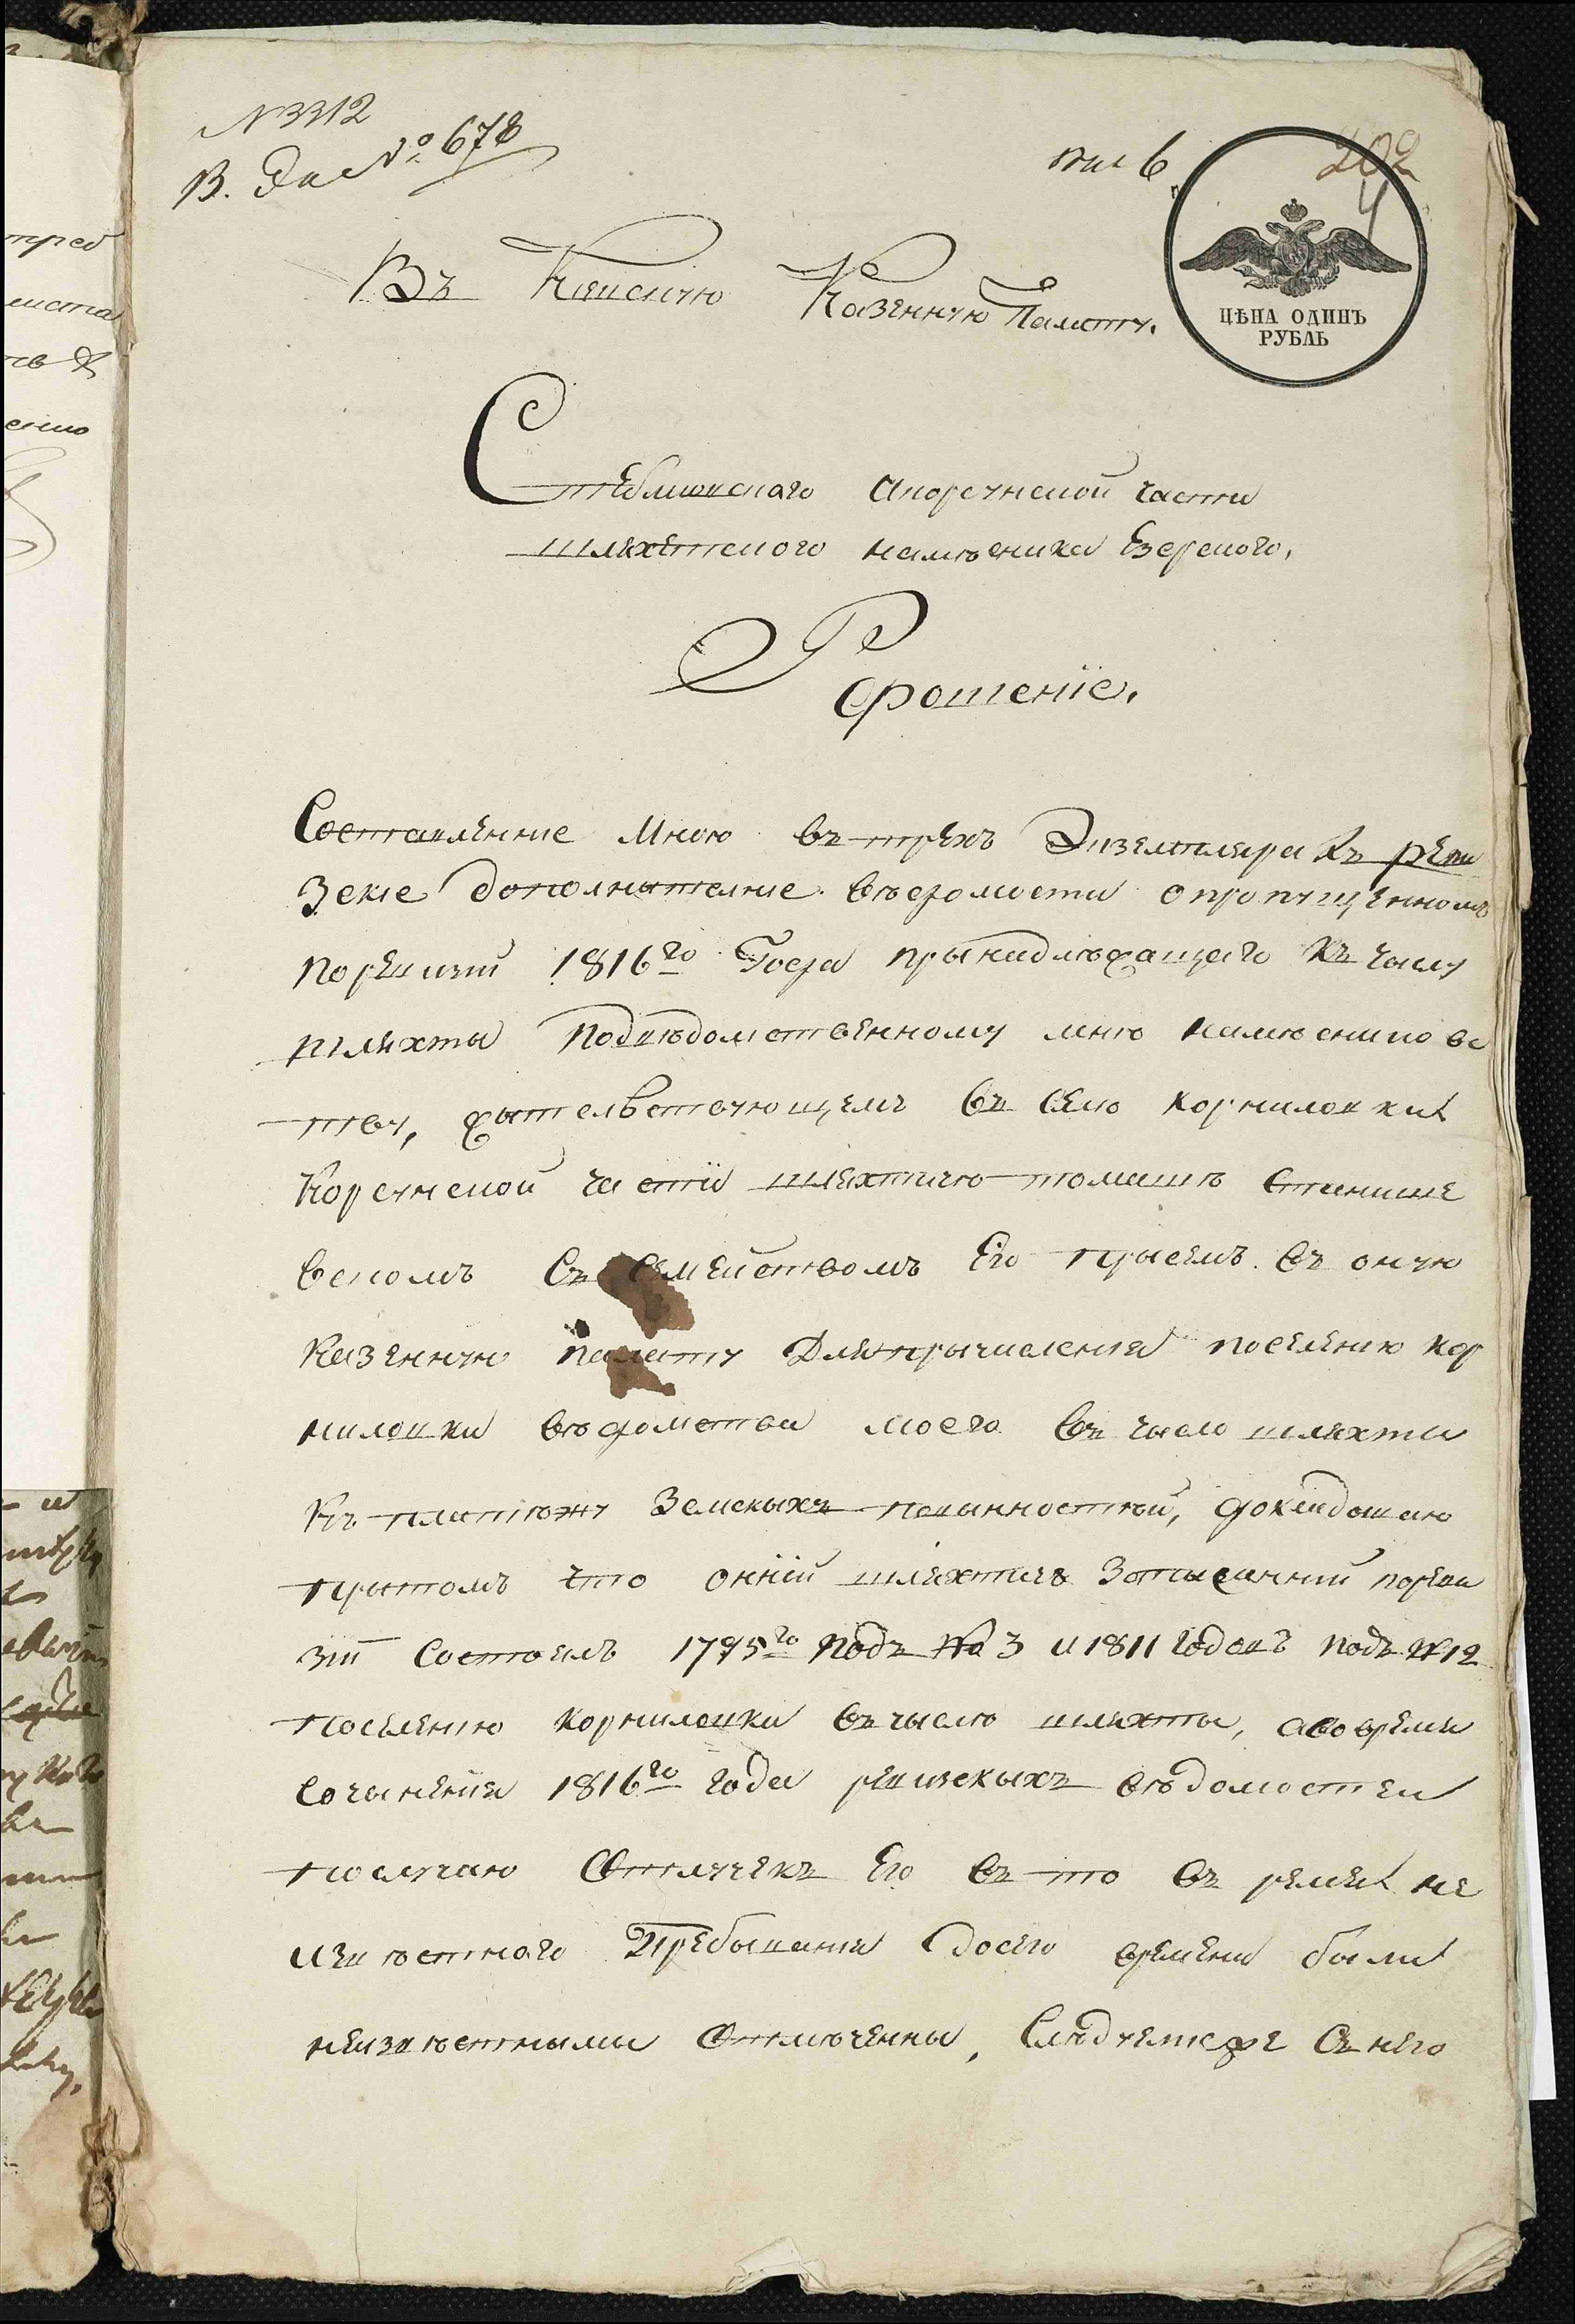 N 3312
В. Да № 678
202
4
ЦѢНА ОДИНЪ
РУБЛЬ
Въ Киевскую Казенную Палату.
Стеблювскаго Икорсунской части
шляхетского намѣсника Езерского,
Прошение,
Составление мною въ трехъ Экземпляра хъ реви
зские дополнителние вѣдомости опропущенномъ
поревизіи 1816го Года прынадлѣжащего къ числу
шляхты подвѣдомственному мнѣ намѣснисве
тву, жытелвствующемъ въ селѣ корниловки
Корсунской части шляхтичѣ томашѣ Станише
вскомъ съ семействомъ его прысемъ въ оную
Казенную палату Для прычисления поселению кор
ниловки вѣдомства моего въ число шляхти
къ платѣжу Земскыхъ повынностѣй, докладываю
прытомъ что онній шляхтичъ Записанній в реви
зіи состоялъ 1795го подъ № 3 и 1811 годовъ подъ № 12
поселению корниловки въ числѣ шляхты, а во время
сочынения 1816го года ревизскыхъ вѣдомостей
послучаю Отлучекъ его въ то въремя не
извѣстного Пребывания досего времени были
неизвѣстными Отмѣченны, Слѣдуетже съ него